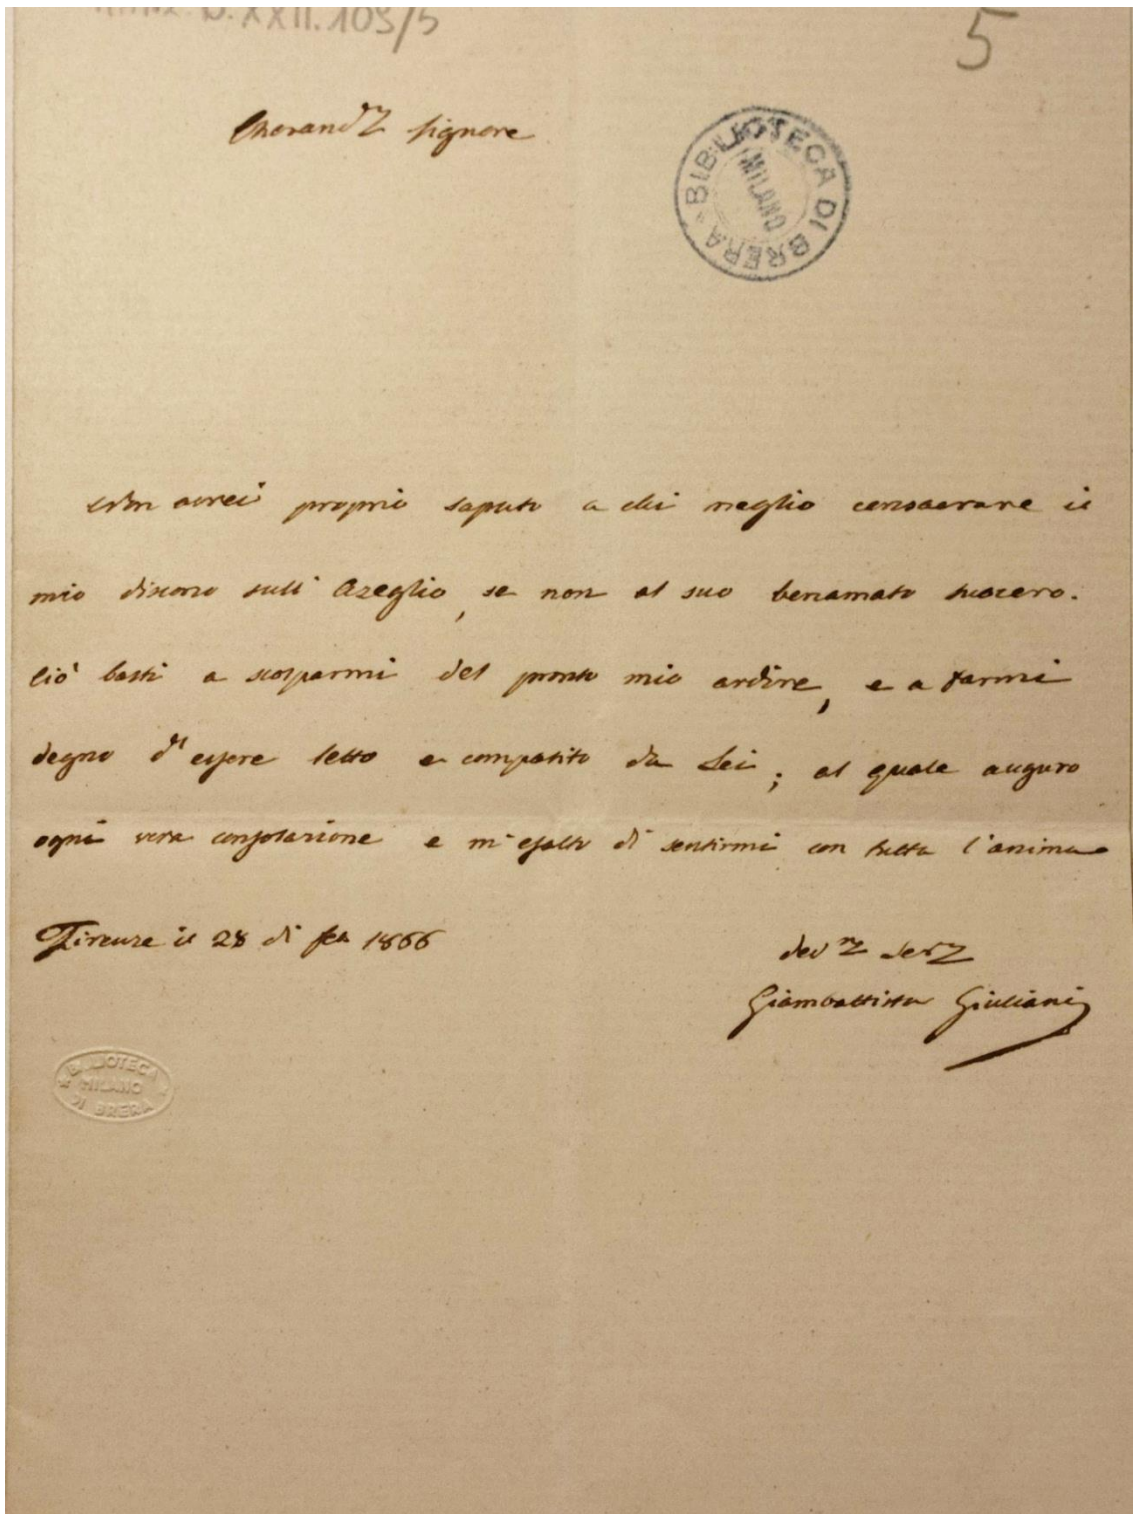 Manz. B.XXII.109/5
5
Onorand.mo Signore
BIBLIOTECA DI BRERA
MILANO
Non avrei proprio saputo a chi meglio consacrare il
mio discorso sull' Azeglio, se non al suo benamato suocero.
Ciò basti a scolparmi del pronto mio ardire, e a farmi
degno d' essere letto e compatito da Lei; al quale auguro
ogni vera consolazione e m' esalto di sentirmi con tutta l'anima
Firenze il 28 di feb 1866
dev.mo ser.
Giambattista Giuliani
BIBLIOTECA
MILANO
DI BRERA